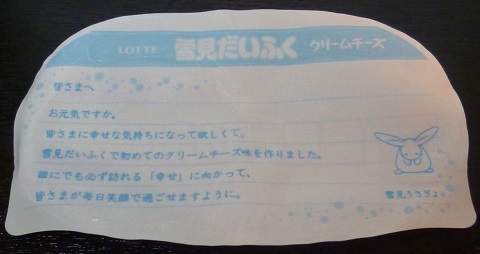 LOTTE 雪見だいふく クリームチーズ
皆さまへ
お元気ですか。
皆さまに幸せな気持ちになって欲しくて、
雪見だいふくで初めてのクリームチーズ味を作りました。
誰にでも必ず訪れる「幸せ」に向かって、
皆さまが毎日笑顔で過ごせますように。
雪見うさぎより